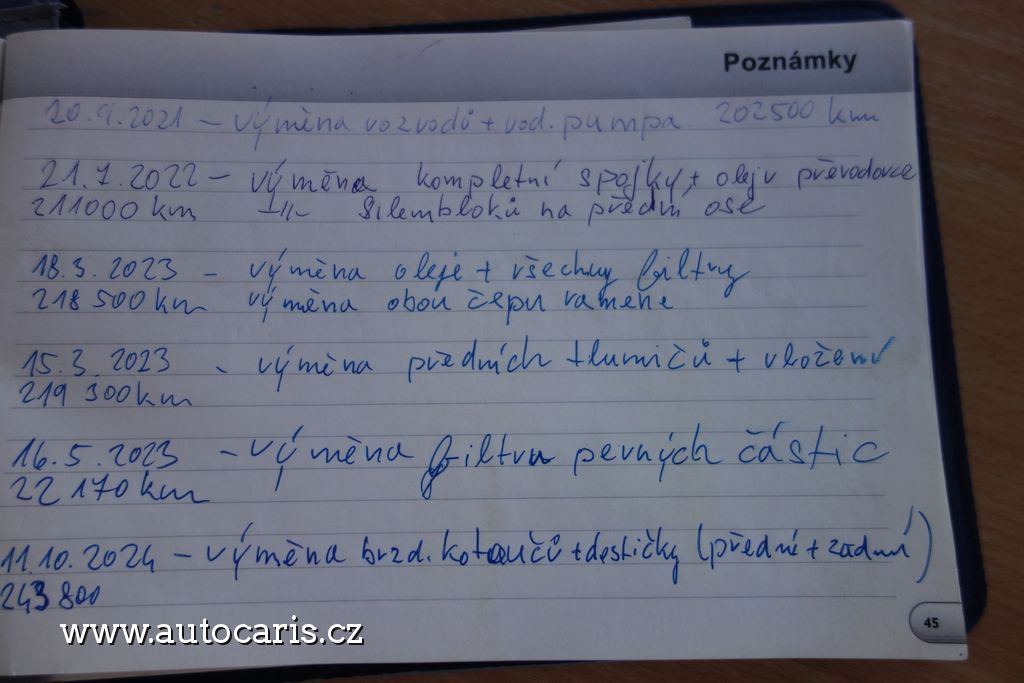 Poznámky
20.9.2021 – výměna rozvodů + vod. pumpa. 202500 km
21.7.2022 – výměna kompletní spojky, + olej v převodovce
211000 km –||– silembloků na přední ose
18.3.2023 – výměna oleje + všechny filtry
218 500 km výměna obou čepu ramene
15.3.2023 - výměna předních tlumičů + vložení
219 300 km
16.5.2023 - výměna filtru pevných částic
22 170 km
11.10.2024 – výměna brzd. kotoučů + destičky (přední + zadní)
243 800
45
www.autocaris.cz